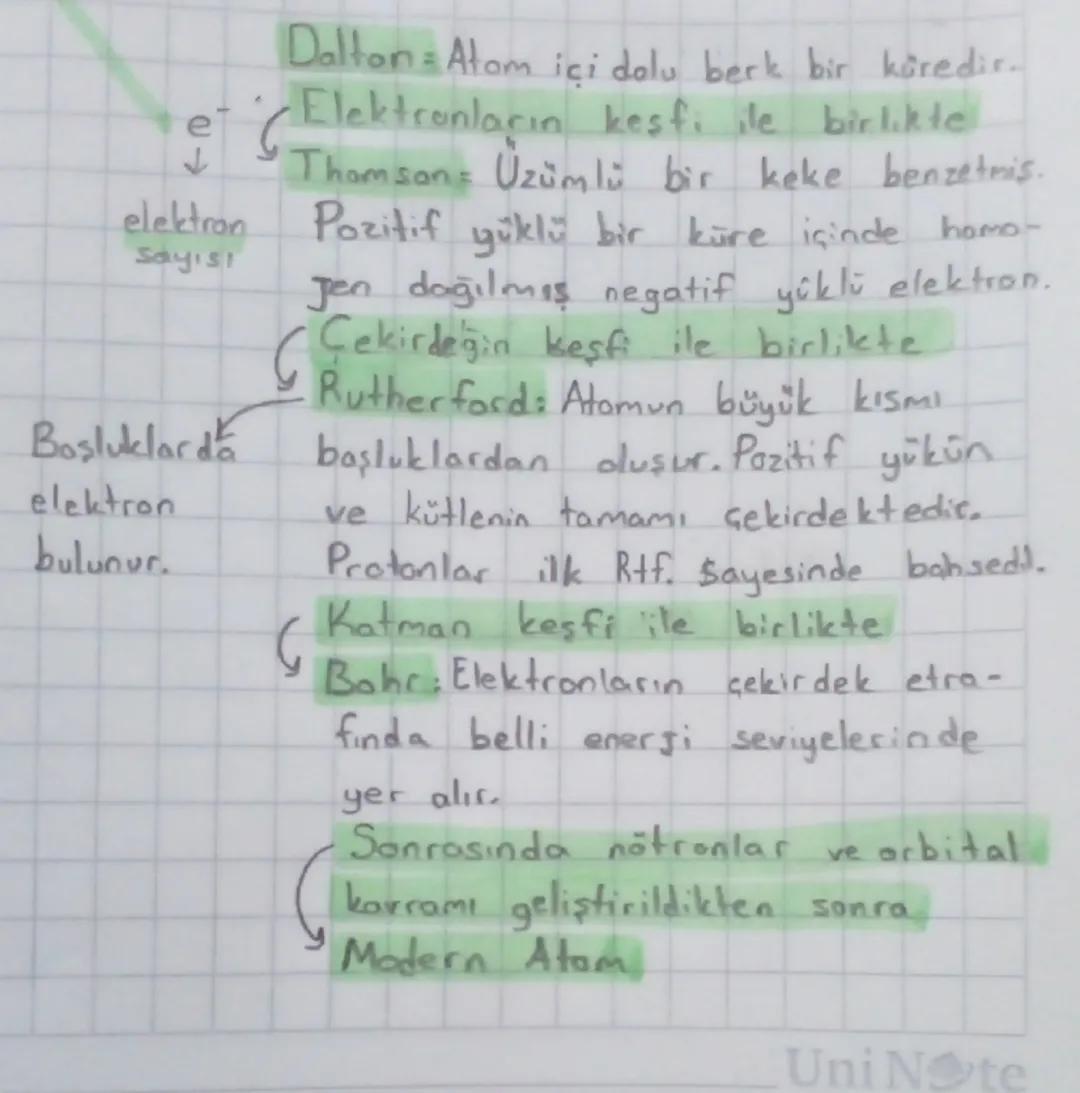 Dalton = Atom içi dolu berk bir küredir.
Elektronların keşfi ile birlikte
Thomson = Üzümlü bir keke benzetmiş.
Pozitif yüklü bir küre içinde homo-
jen dağılmış negatif yüklü elektron.
e⁻
↓
elektron
sayısı
Çekirdeğin keşfi ile birlikte
Rutherford: Atomun büyük kısmı
boşluklardan oluşur. Pozitif yükün
ve kütlenin tamamı çekirdektedir.
Protonlar ilk Rtf. sayesinde bahsedil.
Boşluklarda
elektron
bulunur.
Katman keşfi ile birlikte
Bohr: Elektronların çekirdek etra-
fında belli enerji seviyelerinde
yer alır.
Sonrasında nötronlar ve orbital
kavramı geliştirildikten sonra
Modern Atom
UniNote